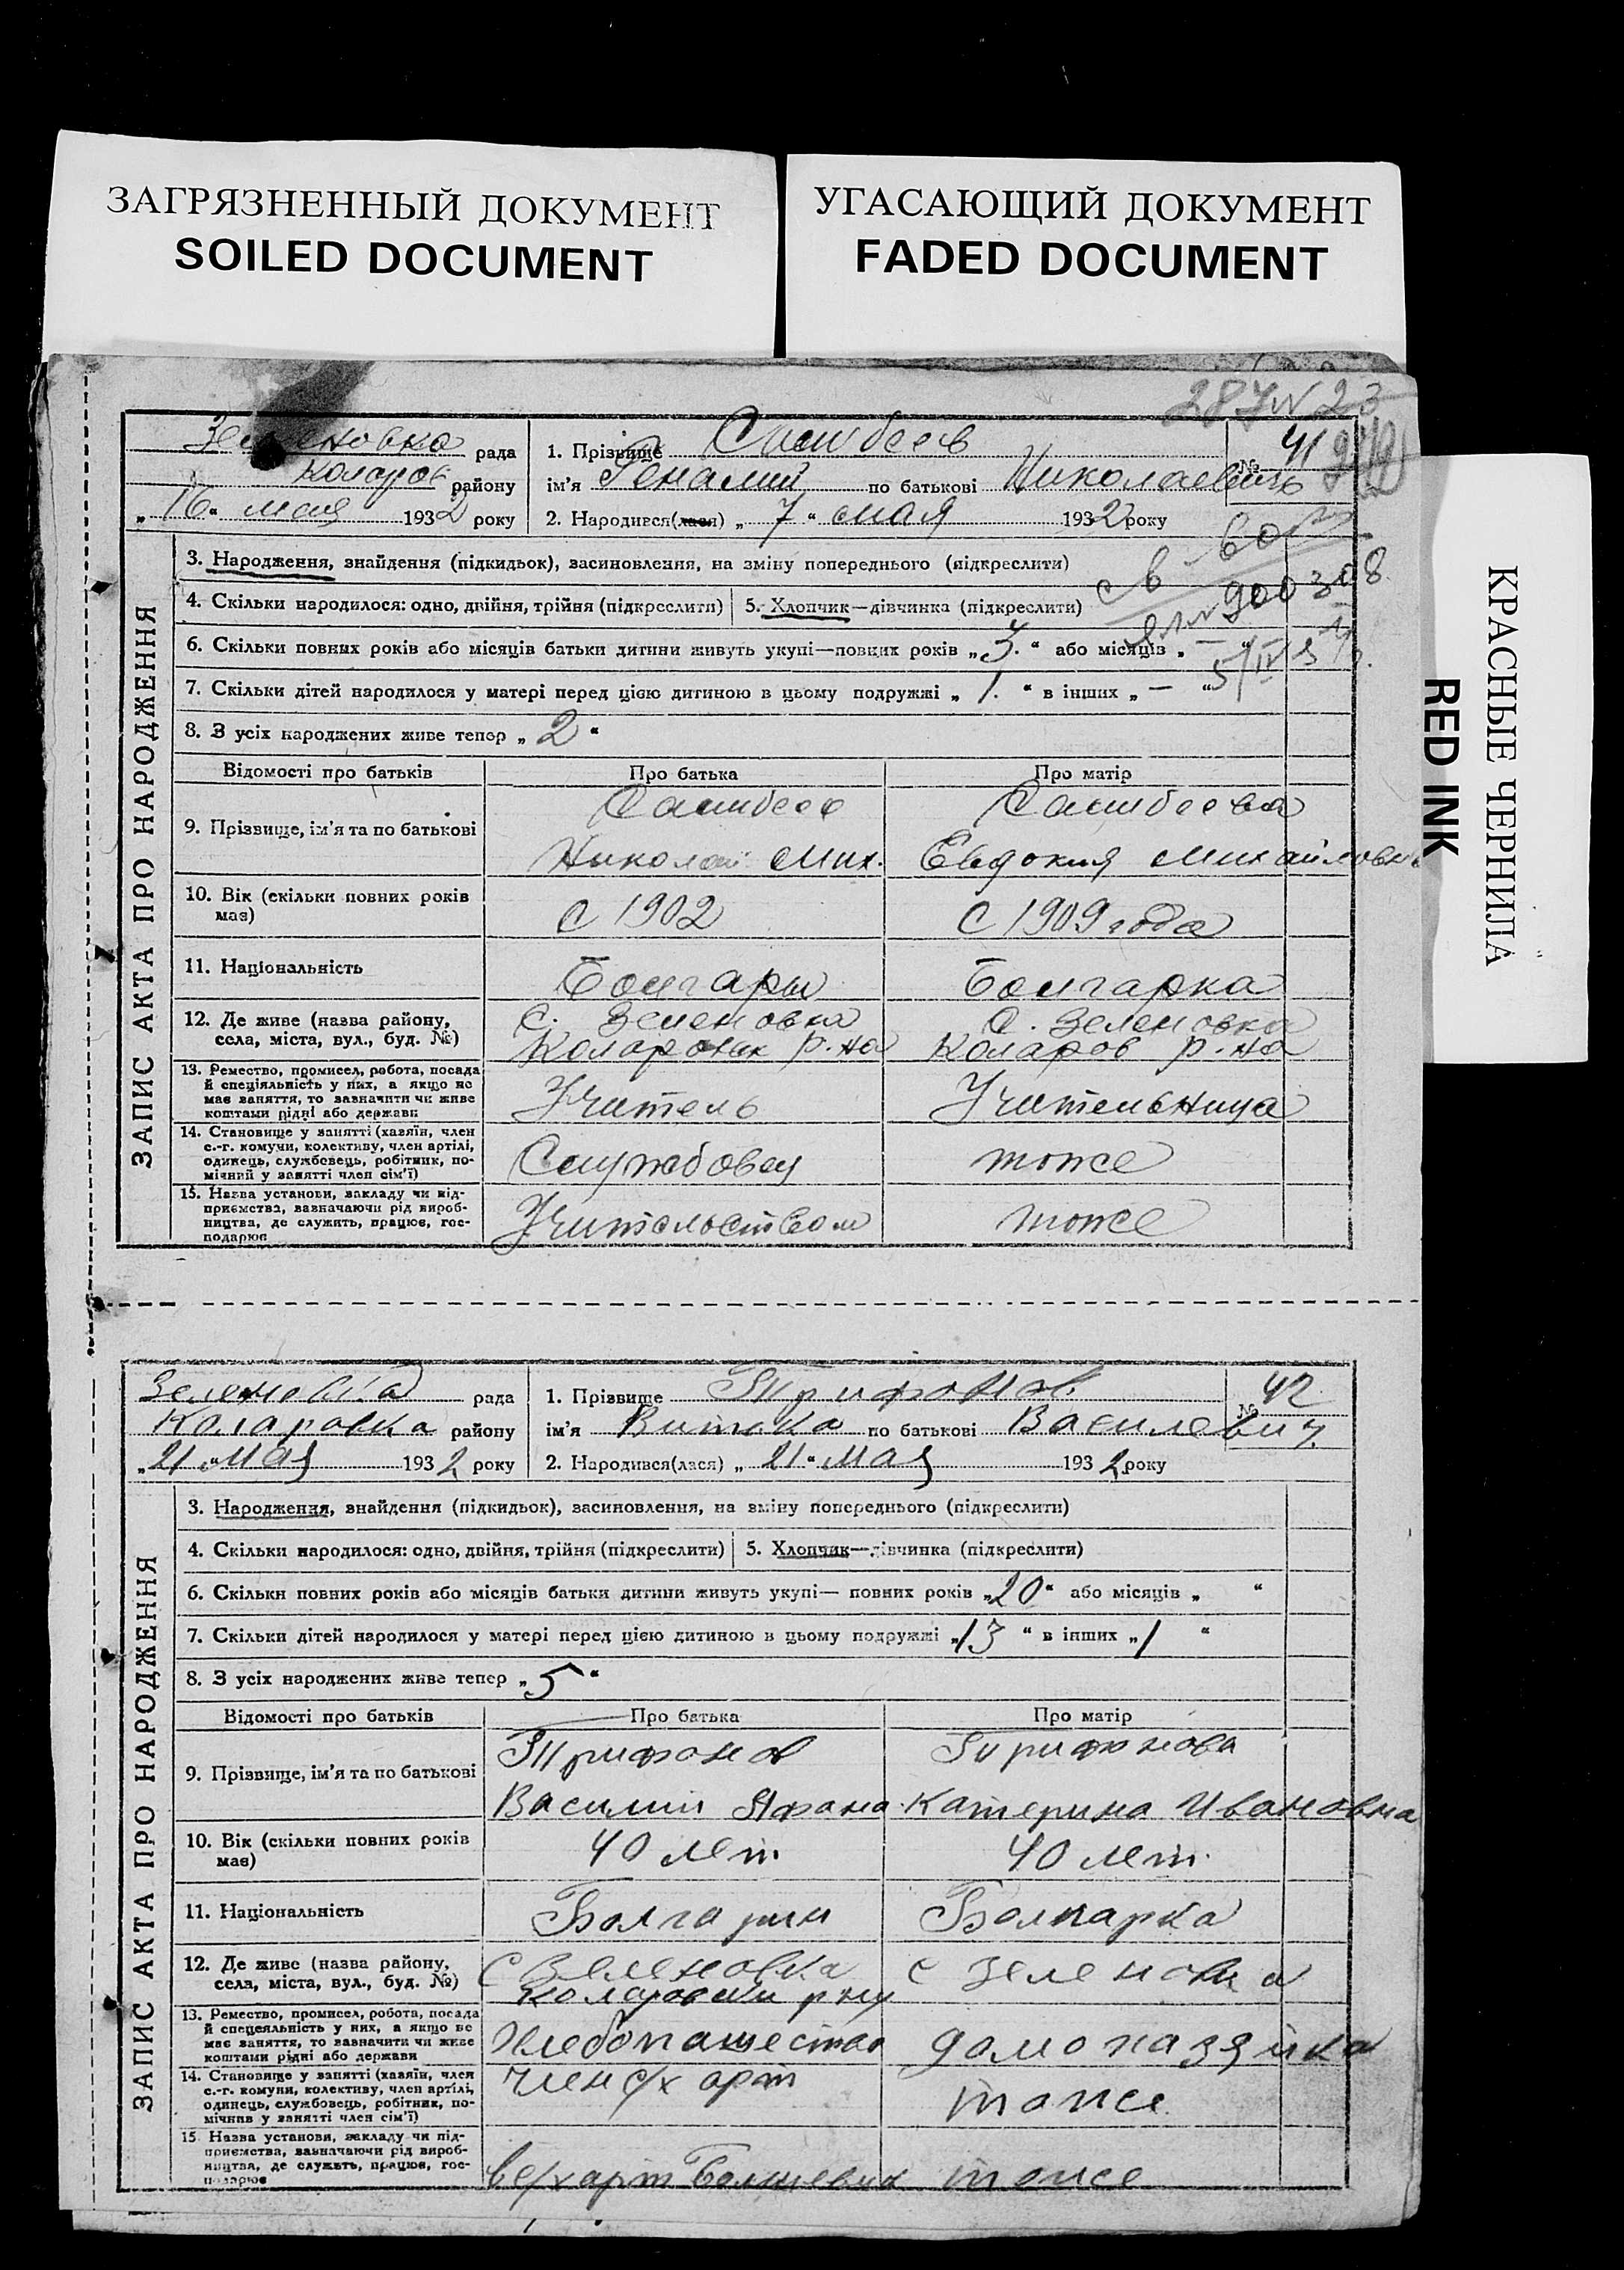 ЗАГРЯЗНЕННЫЙ ДОКУМЕНТ
SOILED DOCUMENT
УГАСАЮЩИЙ ДОКУМЕНТ
FADED DOCUMENT
КРАСНЫЕ ЧЕРНИЛА
RED INK
ЗАПИС АКТА ПРО НАРОДЖЕННЯ
Зеленовка рада
Коларов району
„16“ мая 1932 року
1. Прізвище
№ 41
ім'я по батькові Николаевич
2. Народився(лася) „7“ мая 1932 року
3. Народження, знайдення (підкидьок), засиновлення, на зміну попереднього (підкреслити)
4. Скільки народилося: одно, двійня, трійня (підкреслити) 5. Хлопчик—дівчинка (підкреслити)
6. Скільки повних років або місяців батьки дитини живуть укупі—повних років „3.“ або місяців „—“
7. Скільки дітей народилося у матері перед цією дитиною в цьому подружжі „1.“ в інших „—“
8. З усіх народжених живе тепер „2“
Відомості про батьків Про батька Про матір
9. Прізвище, ім'я та по батькові
Николай Мих. Евдокия Михайловна
10. Вік (скільки повних років має) с 1902 с 1909 года
11. Національність Болгары Болгарка
12. Де живе (назва району, села, міста, вул., буд. №)
с. Зеленовка с. Зеленовка
р-на Коларов р-на
13. Ремество, промисел, робота, посада й спеціяльність у них, а якщо не має заняття, то зазначити чи живе коштами рідні або держави
Учитель Учительница
14. Становище у занятті (хазяїн, член с.-г. комуни, колективу, член артілі, одинець, службовець, робітник, помічний у занятті член сім'ї)
Службовец тоже
15. Назва установи, закладу чи підприємства, зазначаючи рід виробництва, де служить, працює, господарює
Учительством тоже
ЗАПИС АКТА ПРО НАРОДЖЕННЯ
Зеленовка рада
Коларовка району
„21“ мая 1932 року
1. Прізвище Трифонов
№ 42
ім'я Витька по батькові Василевич
2. Народився(лася) „21“ мая 1932 року
3. Народження, знайдення (підкидьок), засиновлення, на зміну попереднього (підкреслити)
4. Скільки народилося: одно, двійня, трійня (підкреслити) 5. Хлопчик—дівчинка (підкреслити)
6. Скільки повних років або місяців батьки дитини живуть укупі— повних років „20“ або місяців „ “
7. Скільки дітей народилося у матері перед цією дитиною в цьому подружжі „13“ в інших „1“
8. З усіх народжених живе тепер „5“
Відомості про батьків Про батька Про матір
9. Прізвище, ім'я та по батькові
Трифонов Трифонова
Василий Афана. Катерина Ивановна
10. Вік (скільки повних років має) 40 лет. 40 лет.
11. Національність Болгарин Болгарка
12. Де живе (назва району, села, міста, вул., буд. №)
С Зеленовка с Зеленовка
13. Ремество, промисел, робота, посада й спецеяльність у них, а якщо не має заняття, то зазначити чи живе коштами рідні або держави
Хлебопашество домохазяйка
14. Становище у занятті (хазяїн, член с.-г. комуни, колективу, член артілі, одинець, службовець, робітник, помічний у занятті член сім'ї)
член с/х арт тоже
15 Назва установи, закладу чи підприємства, зазначаючи рід виробництва, де служить, працює, господарює
в с/х арт Большевик тоже